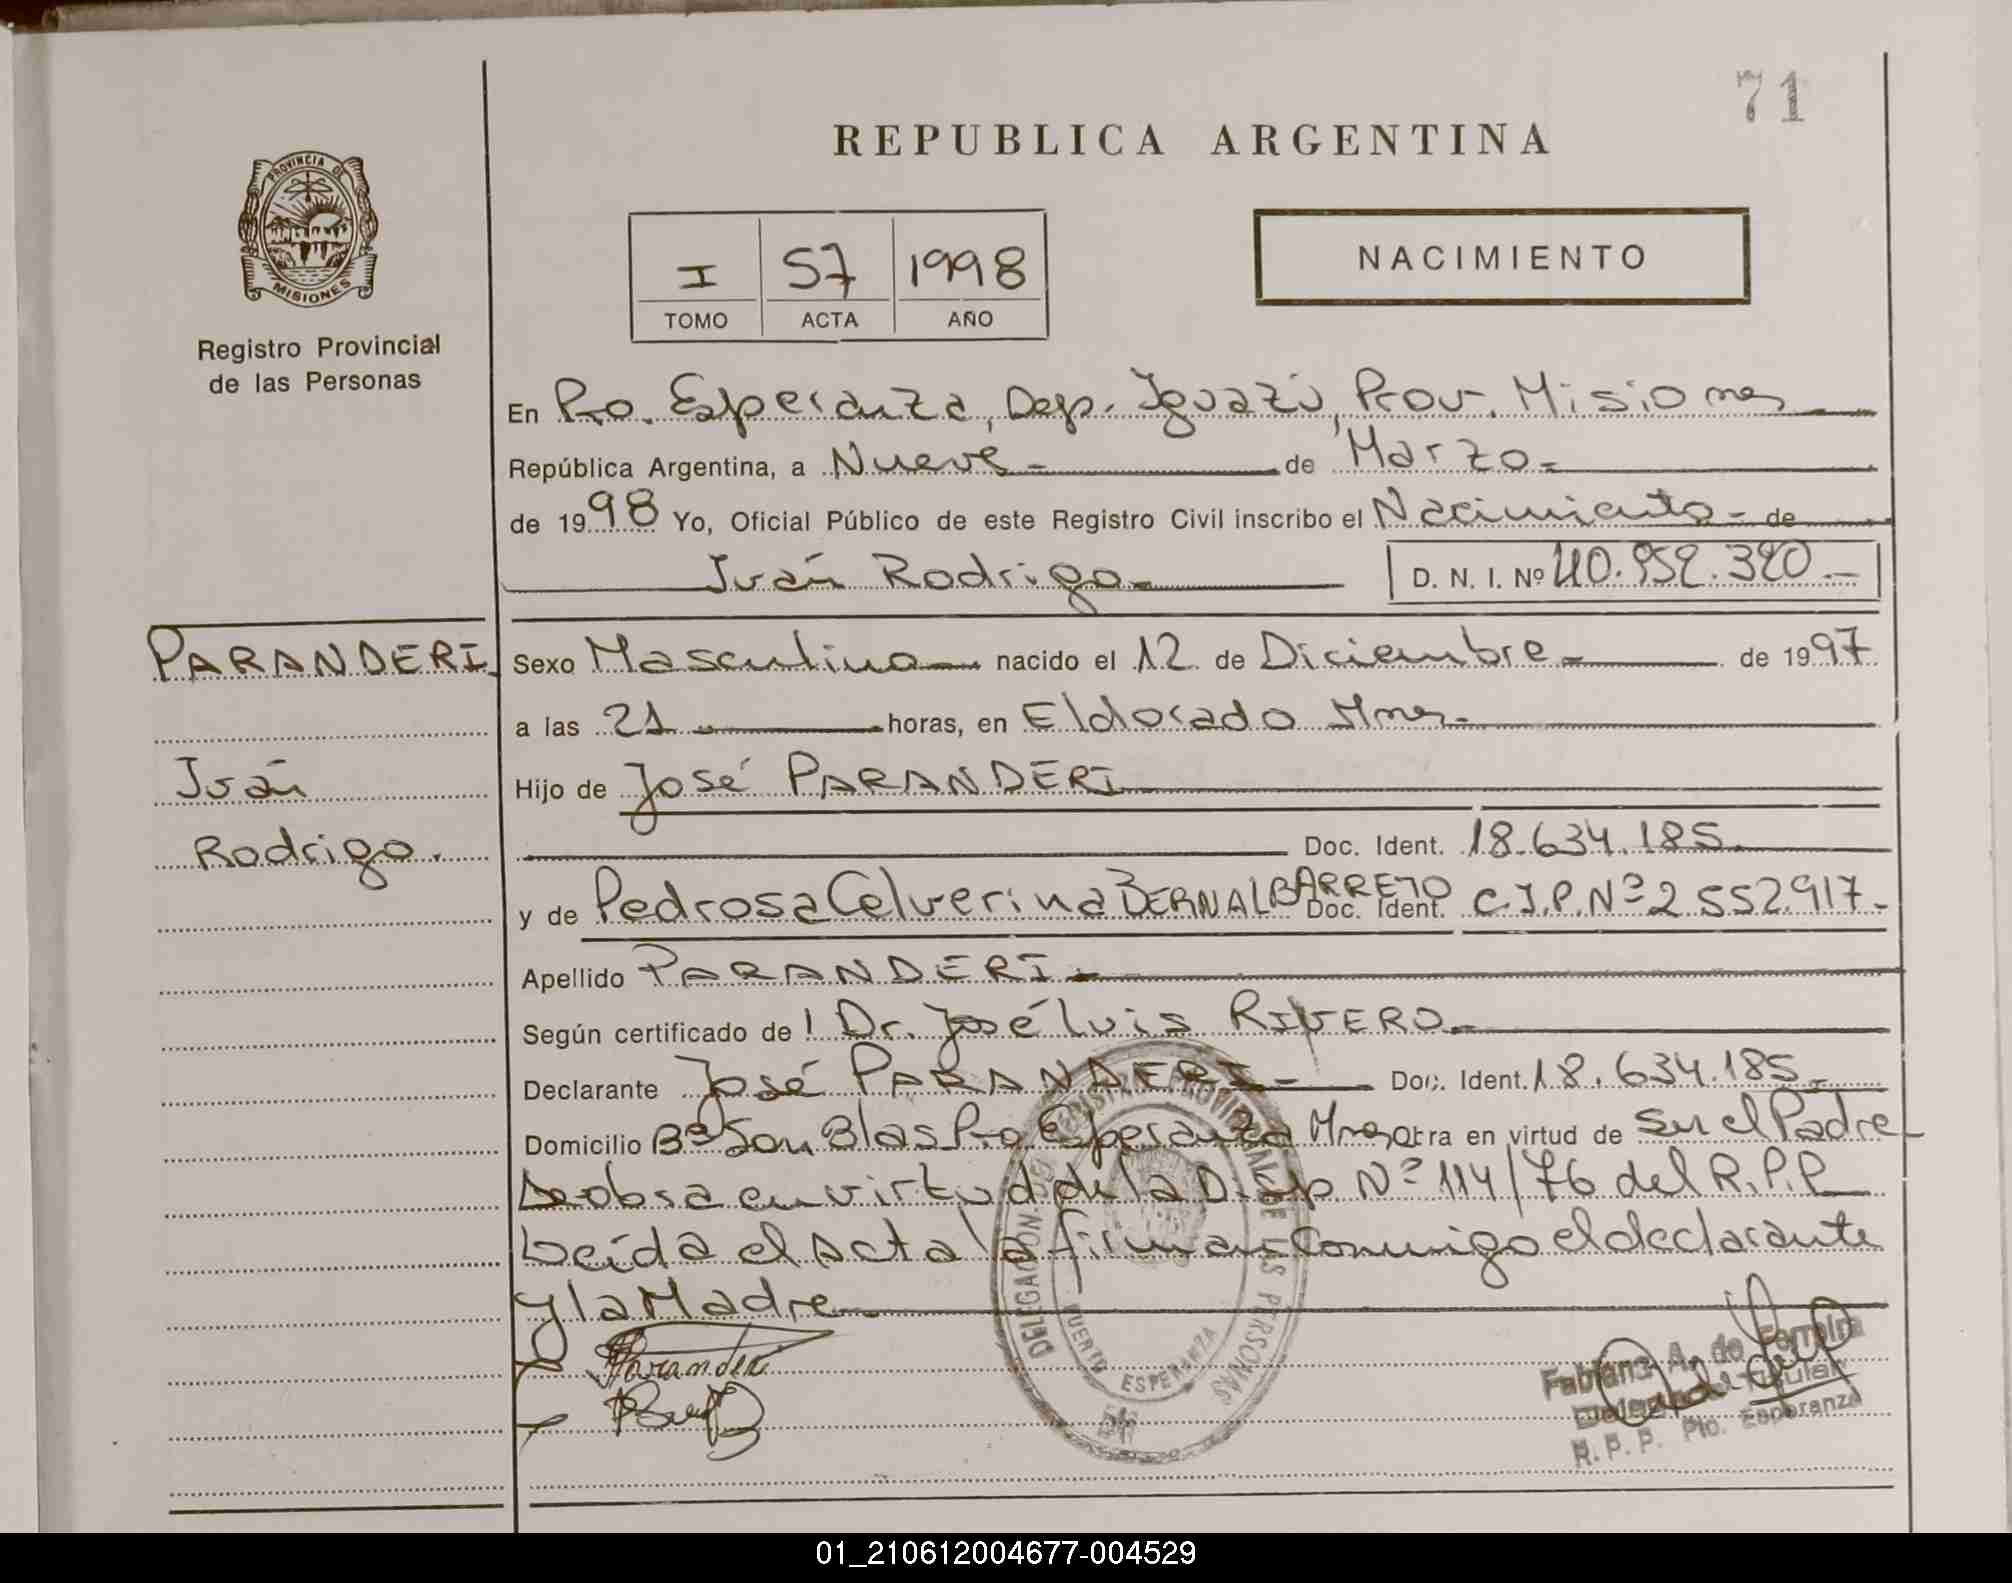 71
REPUBLICA ARGENTINA
PROVINCIA DE
MISIONES
Registro Provincial
de las Personas
I 57 1998
TOMO ACTA AÑO
NACIMIENTO
En Pto. Esperanza, Dep. Iguazú, Prov. Misiones
República Argentina, a Nueve - de Marzo -
de 1998 Yo, Oficial Público de este Registro Civil inscribo el Nacimiento - de
Iván Rodrigo - D. N. I. Nº 40.952.320.-
PARANDERI
Iván
Rodrigo.
Sexo Masculino nacido el 12 de Diciembre - de 1997
a las 21 horas, en Eldorado Mnes.
Hijo de José PARANDERI
Doc. Ident. 18.634.185.
y de Pedrosa Celverina BERNAL BARRETO Doc. Ident. C.I.P. Nº 2552.917.-
Apellido PARANDERI -
Según certificado de: Dr. José Luis RIVERO -
Declarante José PARANDERI - Doc. Ident. 18.634.185.-
Domicilio Bº San Blas Pto Esperanza Mnes, Obra en virtud de Ser el Padre
obra en virtud de la Disp. Nº 114/76 del R.P.P.
Leída el Acta la firman conmigo el declarante
y la Madre -
Paranderi
DELEGACION REGISTRO PROVINCIAL DE LAS PERSONAS
PUERTO ESPERANZA
Fabiana A. de Ferreira
Delegada Titular
R. P. P. Pto. Esperanza
01_210612004677-004529